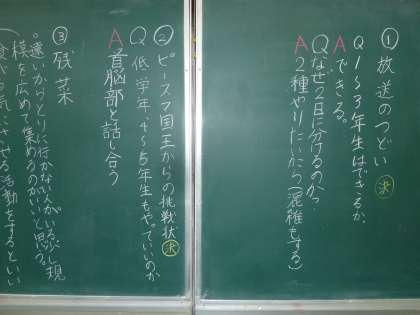 ① 放送のつどい 決
Q 1〜3年生はできるか、
A できる。
Q なぜ2日に分けるのか?
A 2種やりたいから(混雑もする)
② ピースフ国王からの挑戦状 決
Q 低学年、4〜5年生もやっていいのか
A 首脳部と話し合う
③ 残菜
。遠いからとりに行かない人がいる少し規
模を広めて集めるのがいいと思う。
食べる気にさせる活動をするといい